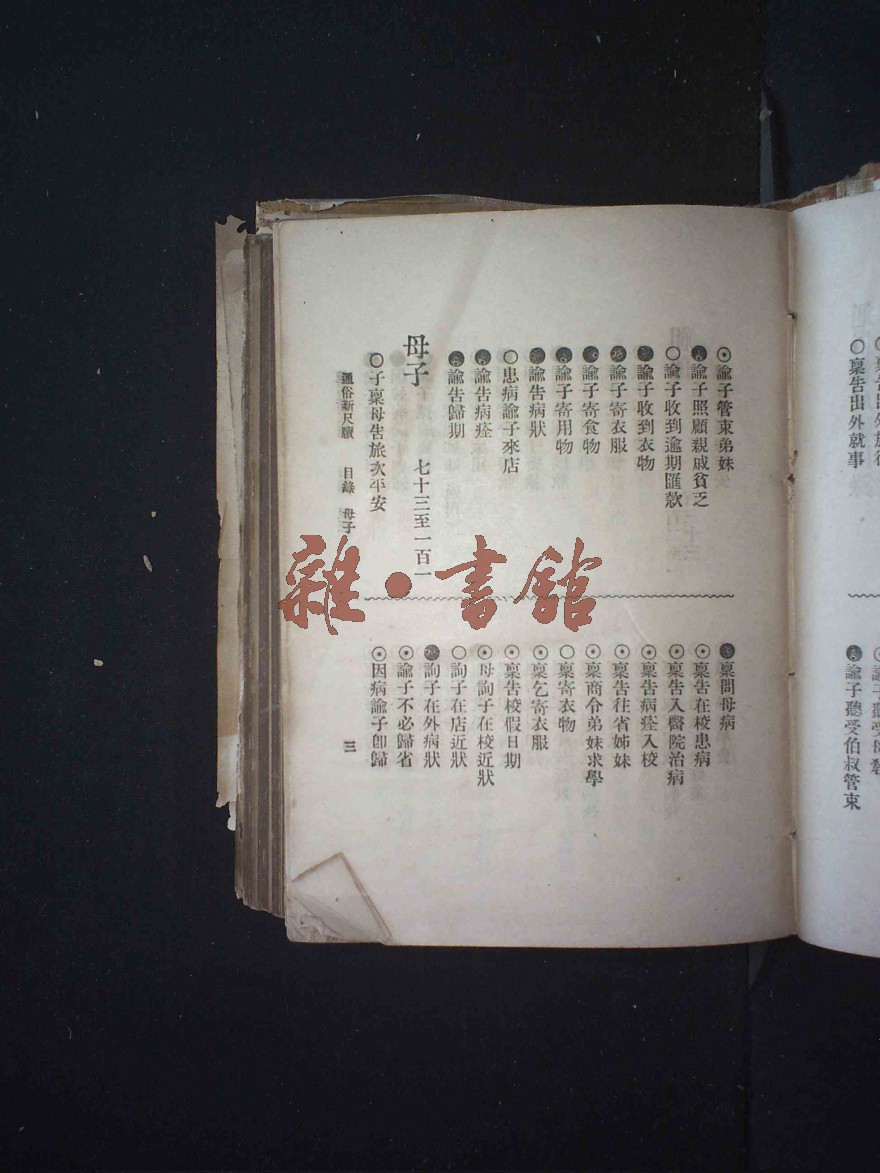 稟告出外就事
諭子聽受伯叔管束
⊙諭子管束弟妹
諭子照顧親戚貧乏
○諭子收到逾期匯款
諭子收到衣物
諭子寄衣服
諭子寄食物
諭子寄用物
諭告病狀
○患病諭子來店
諭告病痊
諭告歸期
母子 七十三至一百一
○子稟母告旅次平安
稟問母病
⊙稟告在校患病
⊙稟告入醫院治病
⊙稟告病痊入校
⊙稟告往省姊妹
⊙稟商令弟妹求學
○稟寄衣物
⊙稟乞寄衣服
⊙稟告校假日期
⊙母詢子在校近狀
○詢子在店近狀
詢子在外病狀
⊙諭子不必歸省
⊙因病諭子卽歸
通俗新尺牘 目錄 母子 三
雜·書館